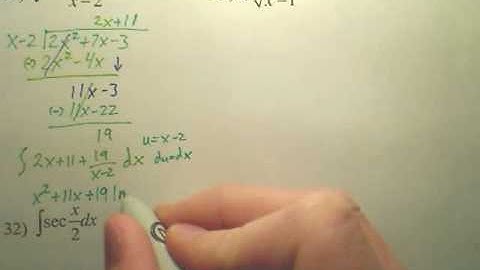 x-2
√x-1
2x+11
x-2 2x²+7x-3
(-) 2x²-4x ↓
11x-3
(-) 11x-22
19
u=x-2
∫ 2x+11+19/x-2 dx du=dx
x²+11x+19 ln
32) ∫sec x/2 dx